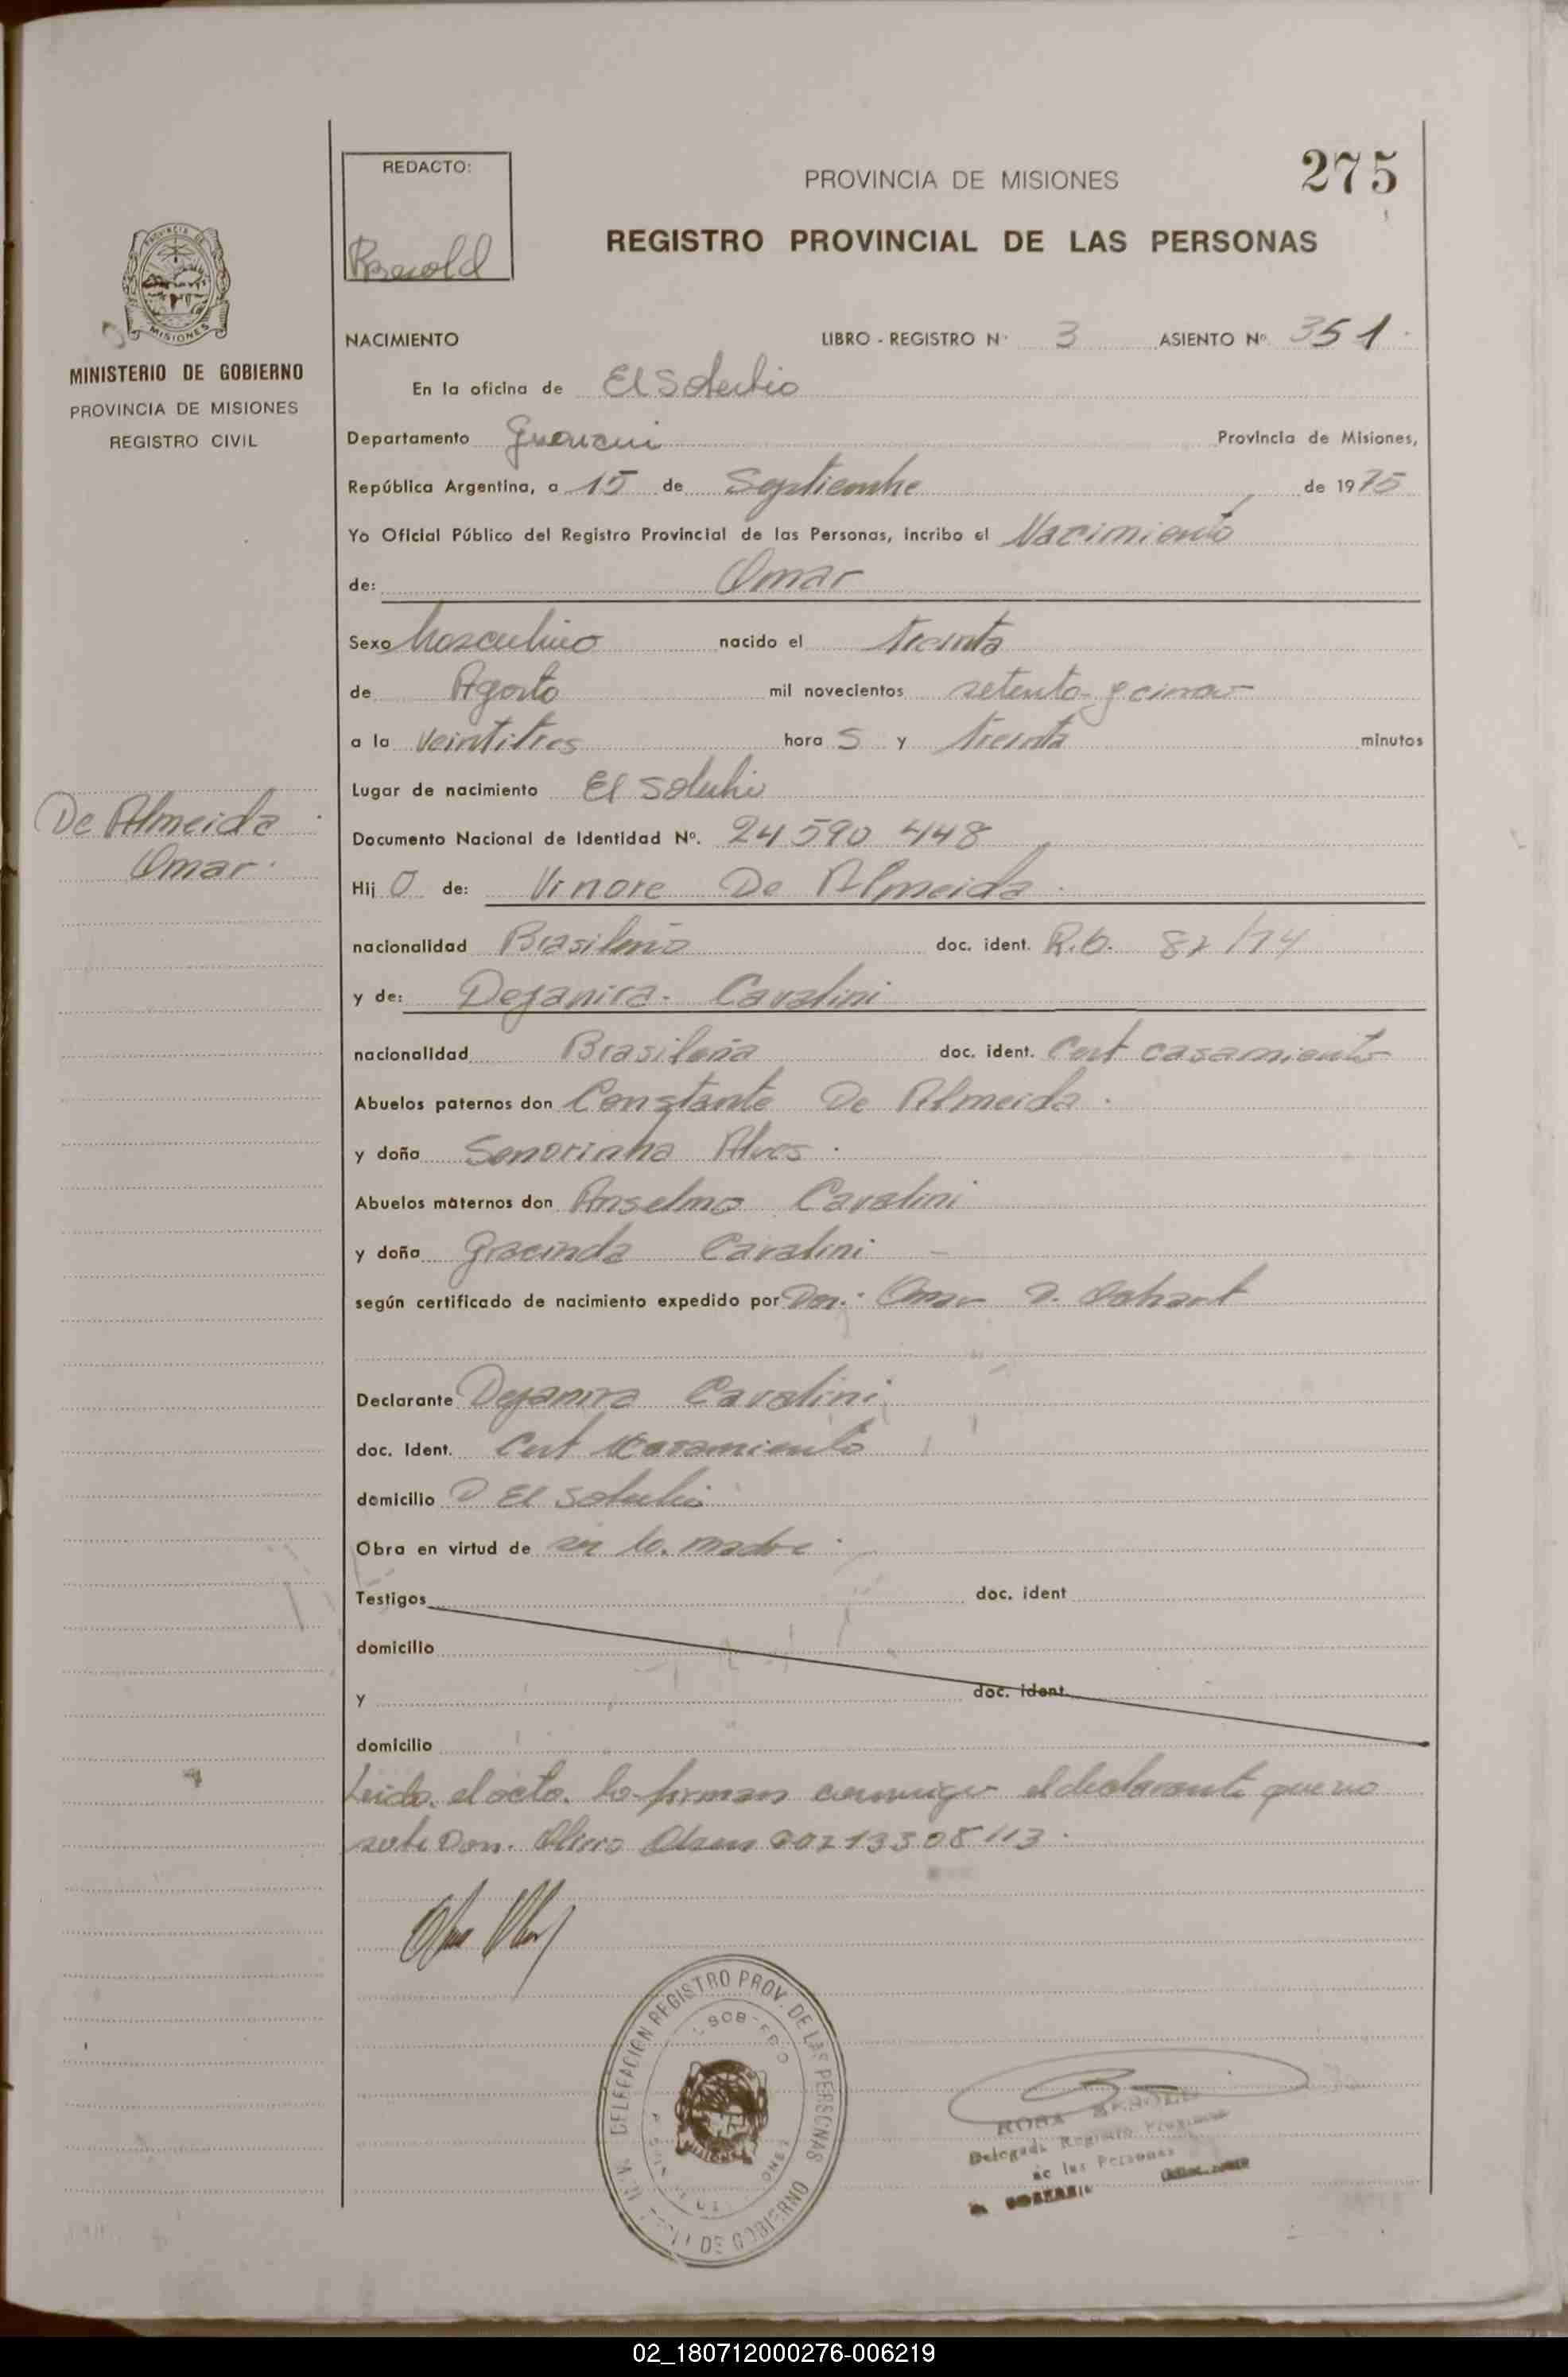 275
REDACTO:
PROVINCIA DE MISIONES
REGISTRO PROVINCIAL DE LAS PERSONAS
PROVINCIA DE
MISIONES
MINISTERIO DE GOBIERNO
PROVINCIA DE MISIONES
REGISTRO CIVIL
NACIMIENTO LIBRO - REGISTRO N° 3 ASIENTO Nº 351
En la oficina de El Soberbio
Departamento Guarani Provincia de Misiones,
República Argentina, a 15 de Septiembre de 1975
Yo Oficial Público del Registro Provincial de las Personas, incribo el Nacimiento
de: Omar
Sexo Masculino nacido el treinta
de Agosto mil novecientos setenta y cinco
a la veintitres hora s y treinta minutos
Lugar de nacimiento El Soberbio
De Almeida
Omar
Documento Nacional de Identidad Nº. 24 590 448
Hij o de: Vinore De Almeida
nacionalidad Brasileño doc. ident. 87/74
y de: Dejanira Cavalini
nacionalidad Brasileña doc. ident. Cert casamiento
Abuelos paternos don Constante De Almeida
y doña Senorinha Alves
Abuelos maternos don Anselmo Cavalini
y doña Gracinda Cavalini
según certificado de nacimiento expedido por Omar
Declarante Dejanira Cavalini
doc. Ident. Cert casamiento
domicilio El Soberbio
Obra en virtud de ser la madre
Testigos doc. ident
domicilio
y doc. ident.
domicilio
Leida el acta la firman conmigo el declarante que no
sabe Don.
DELEGACION REGISTRO PROV. DE LAS PERSONAS
DE GOBIERNO
MISIONES
ROSA
Delegada Registro Provincial
de las Personas
02_180712000276-006219